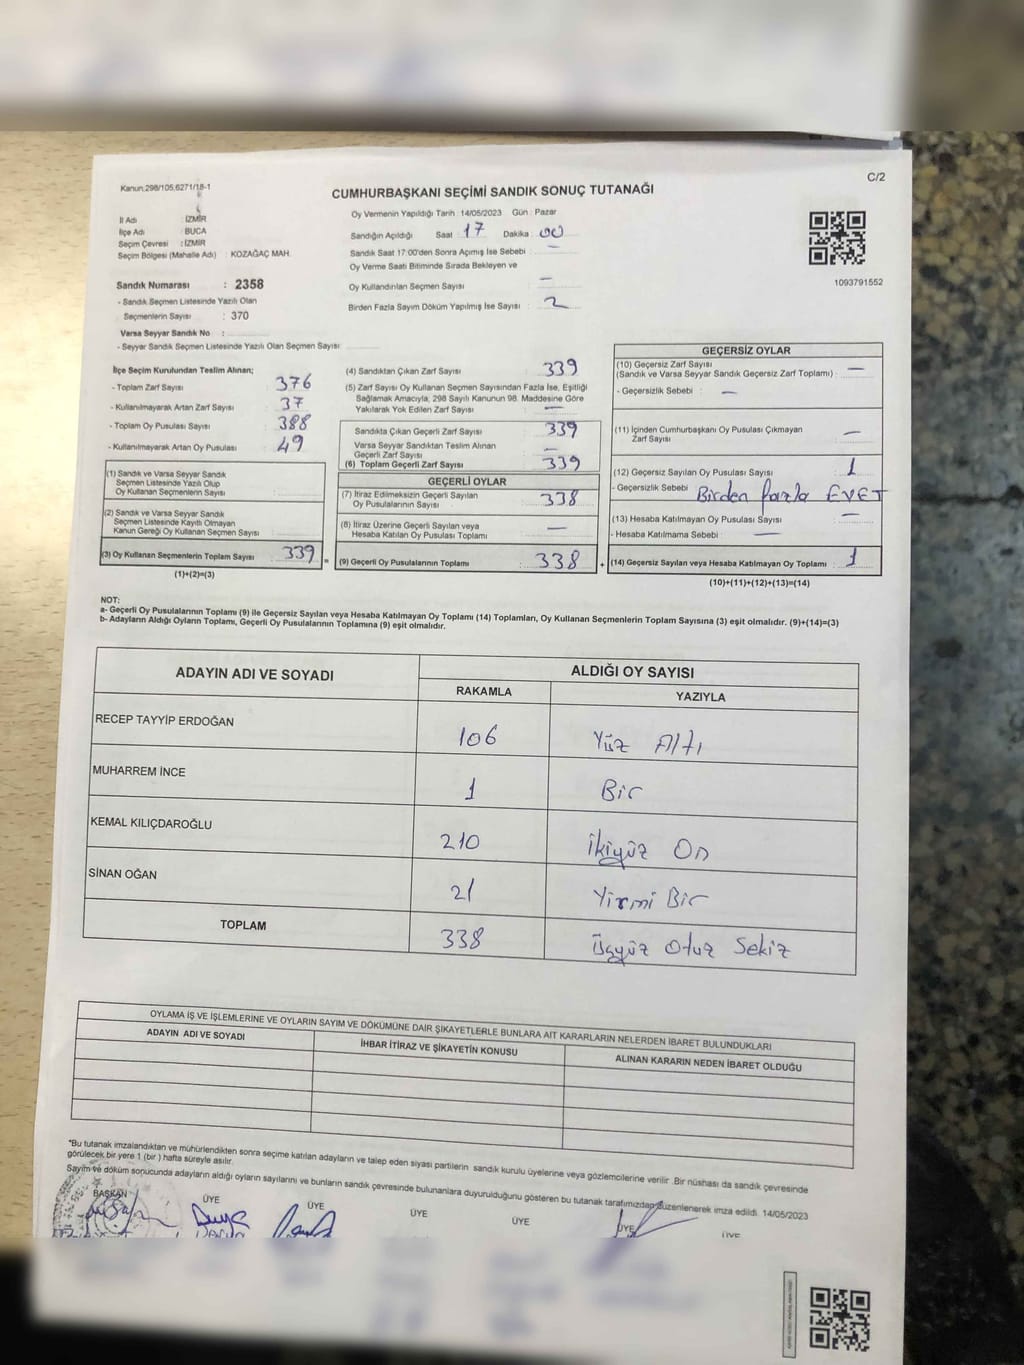 Kanun:298/105,6271/18-1
C/2
CUMHURBAŞKANI SEÇİMİ SANDIK SONUÇ TUTANAĞI
İl Adı : İZMİR
İlçe Adı : BUCA
Seçim Çevresi : İZMİR
Seçim Bölgesi (Mahalle Adı) : KOZAĞAÇ MAH.
Sandık Numarası : 2358
- Sandık Seçmen Listesinde Yazılı Olan
Seçmenlerin Sayısı : 370
Varsa Seyyar Sandık No :
- Seyyar Sandık Seçmen Listesinde Yazılı Olan Seçmen Sayısı:
Oy Vermenin Yapıldığı Tarih : 14/05/2023 Gün : Pazar
Sandığın Açıldığı Saat : 17 Dakika : 00
Sandık Saat 17:00'den Sonra Açımış İse Sebebi : —
Oy Verme Saati Bitiminde Sırada Bekleyen ve
Oy Kullandırılan Seçmen Sayısı : —
Birden Fazla Sayım Döküm Yapılmış İse Sayısı : 2
1093791552
İlçe Seçim Kurulundan Teslim Alınan;
- Toplam Zarf Sayısı : 376
- Kullanılmayarak Artan Zarf Sayısı : 37
- Toplam Oy Pusulası Sayısı : 388
- Kullanılmayarak Artan Oy Pusulası : 49
(1) Sandık ve Varsa Seyyar Sandık
Seçmen Listesinde Yazılı Olup
Oy Kullanan Seçmenlerin Sayısı :
(2) Sandık ve Varsa Seyyar Sandık
Seçmen Listesinde Kayıtlı Olmayan
Kanun Gereği Oy Kullanan Seçmen Sayısı :
(3) Oy Kullanan Seçmenlerin Toplam Sayısı : 339 =
(1)+(2)=(3)
(4) Sandıktan Çıkan Zarf Sayısı : 339
(5) Zarf Sayısı Oy Kullanan Seçmen Sayısından Fazla İse, Eşitliği
Sağlamak Amacıyla, 298 Sayılı Kanunun 98. Maddesine Göre
Yakılarak Yok Edilen Zarf Sayısı : —
Sandıkta Çıkan Geçerli Zarf Sayısı : 339
Varsa Seyyar Sandıktan Teslim Alınan
Geçerli Zarf Sayısı : —
(6) Toplam Geçerli Zarf Sayısı : 339
GEÇERLİ OYLAR
(7) İtiraz Edilmeksizin Geçerli Sayılan
Oy Pusulalarının Sayısı : 338
(8) İtiraz Üzerine Geçerli Sayılan veya
Hesaba Katılan Oy Pusulası Toplamı : —
(9) Geçerli Oy Pusulalarının Toplamı : 338 +
GEÇERSİZ OYLAR
(10) Geçersiz Zarf Sayısı
(Sandık ve Varsa Seyyar Sandık Geçersiz Zarf Toplamı) : —
- Geçersizlik Sebebi : —
(11) İçinden Cumhurbaşkanı Oy Pusulası Çıkmayan
Zarf Sayısı : —
(12) Geçersiz Sayılan Oy Pusulası Sayısı : 1
- Geçersizlik Sebebi : Birden fazla EVET
(13) Hesaba Katılmayan Oy Pusulası Sayısı : —
- Hesaba Katılmama Sebebi : —
(14) Geçersiz Sayılan veya Hesaba Katılmayan Oy Toplamı : 1
(10)+(11)+(12)+(13)=(14)
NOT:
a- Geçerli Oy Pusulalarının Toplamı (9) ile Geçersiz Sayılan veya Hesaba Katılmayan Oy Toplamı (14) Toplamları, Oy Kullanan Seçmenlerin Toplam Sayısına (3) eşit olmalıdır. (9)+(14)=(3)
b- Adayların Aldığı Oyların Toplamı, Geçerli Oy Pusulalarının Toplamına (9) eşit olmalıdır.
ADAYIN ADI VE SOYADI ALDIĞI OY SAYISI
RAKAMLA YAZIYLA
RECEP TAYYİP ERDOĞAN 106 Yüz Altı
MUHARREM İNCE 1 Bir
KEMAL KILIÇDAROĞLU 210 İkiyüz On
SİNAN OĞAN 21 Yirmi Bir
TOPLAM 338 Üçyüz Otuz Sekiz
OYLAMA İŞ VE İŞLEMLERİNE VE OYLARIN SAYIM VE DÖKÜMÜNE DAİR ŞİKAYETLERLE BUNLARA AİT KARARLARIN NELERDEN İBARET BULUNDUKLARI
ADAYIN ADI VE SOYADI İHBAR İTİRAZ VE ŞİKAYETİN KONUSU ALINAN KARARIN NEDEN İBARET OLDUĞU
*Bu tutanak imzalandıktan ve mühürlendikten sonra seçime katılan adayların ve talep eden siyasi partilerin sandık kurulu üyelerine veya gözlemcilerine verilir .Bir nüshası da sandık çevresinde
görülecek bir yere 1 (bir ) hafta süreyle asılır.
Sayım ve döküm sonucunda adayların aldığı oyların sayılarını ve bunların sandık çevresinde bulunanlara duyurulduğunu gösteren bu tutanak tarafımızdan düzenlenerek imza edildi. 14/05/2023
BAŞKAN ÜYE ÜYE ÜYE ÜYE ÜYE ÜYE